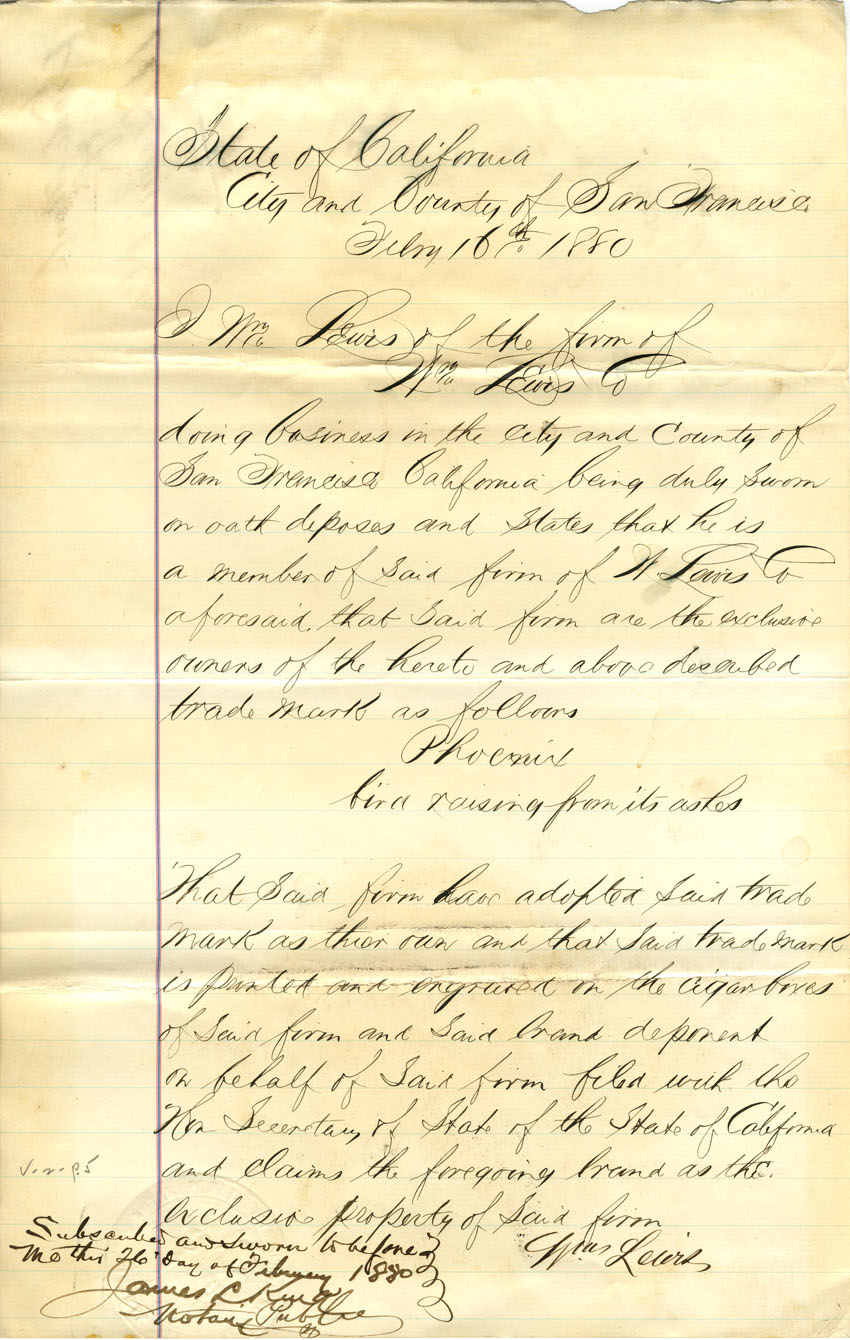 State of California
City and County of San Francisco
Feby 16th 1880
I Wm Lewis of the firm of
Wm Lewis Co
doing business in the city and County of
San Francisco California being duly sworn
on oath deposes and States that he is
a member of Said firm of W. Lewis Co
aforesaid, that Said firm are the exclusive
owners of the hereto and above described
trade mark as follows
Phoenix
bird raising from its ashes
That Said firm have adopted Said trade
mark as thier own and that Said trade mark
is printed and engraved on the cigar boxes
of Said firm and Said brand deponent
on behalf of Said firm filed with the
Hon Secretary of State of the State of California
and claims the foregoing brand as the
exclusive property of Said firm
Wm Lewis
Subscribed and sworn to before
me this 26 Day of February 1880
James L King
Notary Public